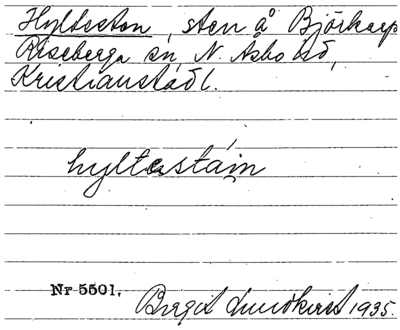 Hyltesten, sten å Björkarp
Riseberga sn, N. Åsbo hd,
Kristianstads l.
hyltestáin
Nr 5501. Birgit Lundkvist 1935.